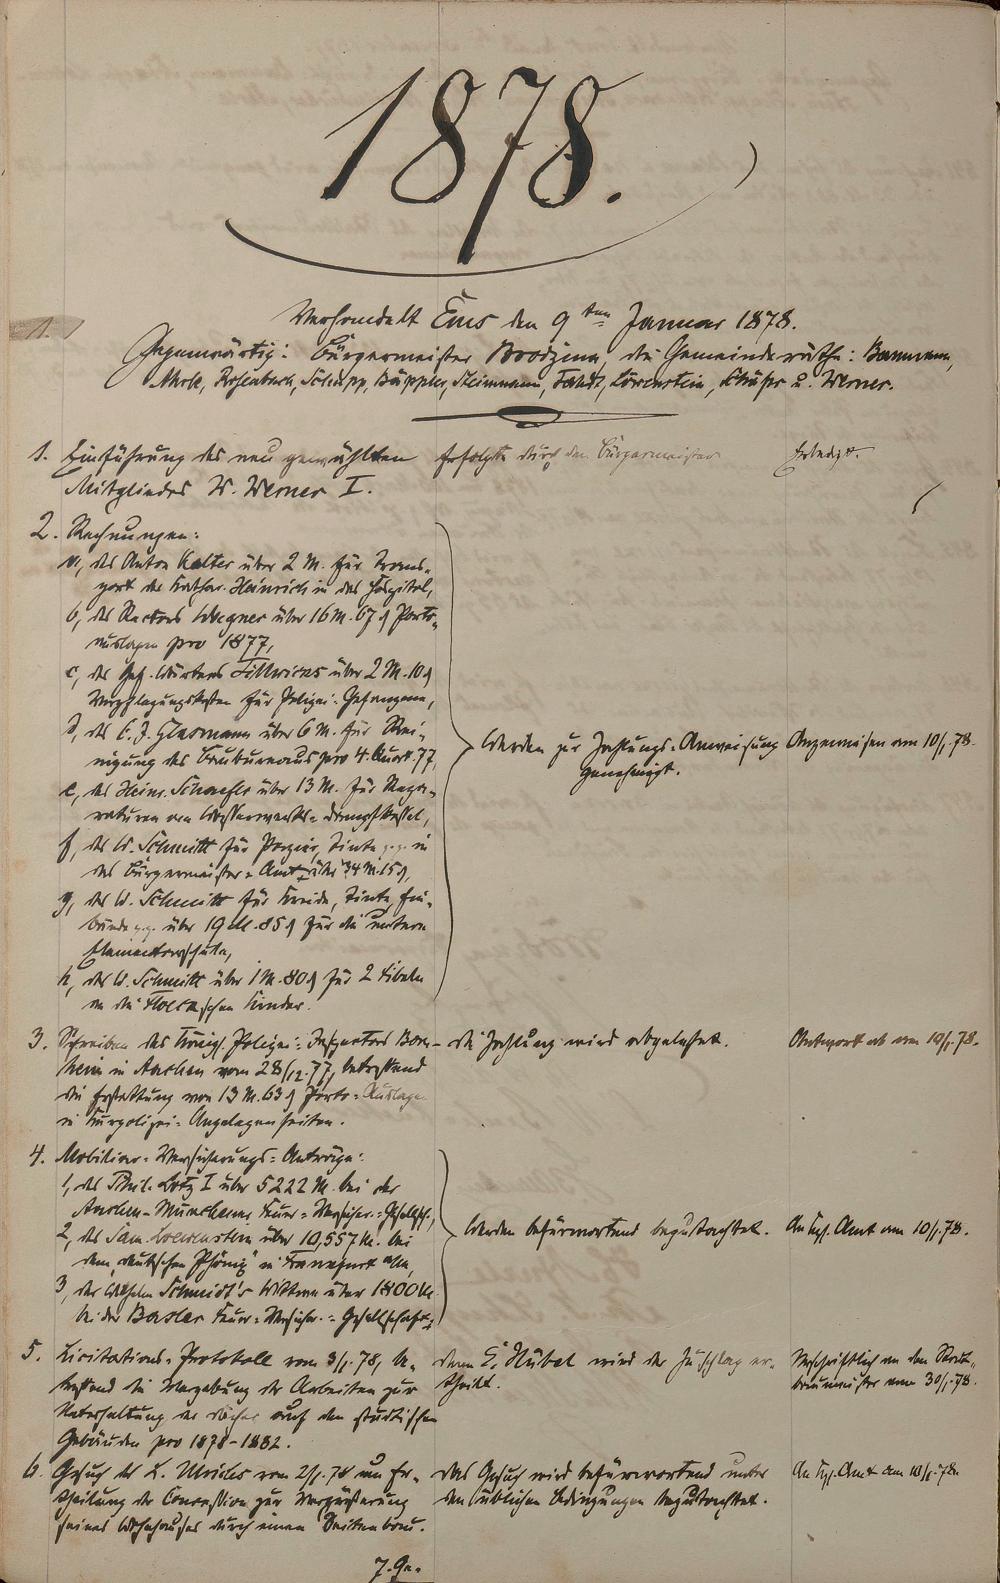 1878.
1.
Verhandelt Ems den 9ten Januar 1878.
Gegenwärtig: Bürgermeister die Gemeinderäthe: Bammann,
Rosenbach, Schupp, Steinmann, Löwenstein, Schäfer u. Werner.
1. Einführung des neu gewählten
Mitgliedes W. Werner I.
erfolgte durch den Bürgermeister
Erledigt.
2. Rechnungen:
a, des Anton Kalter über 2 M. für Trans-
port der Kathar. Heinrich in das Hospital,
b, des Rectors Wagner über 16 M. 67 ₰ Porto-
auslagen pro 1877,
c, des Gef.-Wärters über 2 M. 10 ₰
Verpflegungskosten für Polizei-Gefangene,
d, des E. J. Glasmann über 6 M. für Rei-
nigung des Baubureaus pro 4. Quart. 77,
e, des Heinr. Schaefer über 13 M. für Repa-
raturen am Wasserwerks-Dampfkessel,
f, des W. Schmitt für Papier, Tinte p.p. in
das Bürgermeister-Amt über 34 M. 15 ₰,
g, des W. Schmitt für Kreide, Tinte, Ein-
bände p.p. über 19 M. 85 ₰ für die untere
Elementarschule,
h, des W. Schmitt über 1 M. 80 ₰ für 2 Fibeln
an die Kinder.
Werden zur Zahlungs-Anweisung
genehmigt.
Angewiesen am 10/1. 78.
3. Schreiben des Königl. Polizei-Inspectors Born-
heim in Aachen vom 28/12. 77, betreffend
die Erstattung von 13 M. 63 ₰ Porto-Auslagen
in Kurpolizei-Angelegenheiten.
die Zahlung wird abgelehnt.
Antwort ab am 10/1. 78.
4. Mobiliar-Versicherungs-Anträge:
1, des Phil. Lotz I über 5222 M. bei der
Aachen-Münchener Feuer-Versicher.-Gesellsch.,
2, des Sam. Loewenstein über 10,557 M. bei
dem „deutschen Phönix" in Frankfurt a/M,
3, der Wilhelm Schmidt's Wittwe über 1800 M.
bei der Basler Feuer-Versicher.-Gesellschaft;
Werden befürwortend begutachtet.
An Kgl. Amt am 10/1. 78.
5. Licitations-Protokoll vom 3/1. 78, be-
treffend die Vergebung der Arbeiten zur
Unterhaltung der Dächer auf den städtischen
Gebäuden pro 1878-1882.
dem C. Hübel wird der Zuschlag er-
theilt.
Abschriftlich an den Stadt-
baumeister am 30/1. 78.
6. Gesuch des L. vom 2/1. 78 um Er-
theilung der Concession zur Vergrößerung
seines Wohnhauses durch einen Seitenbau.
Das Gesuch wird befürwortend unter
den üblichen Bedingungen begutachtet.
An Kgl. Amt am 10/1. 78.
7. Ge-